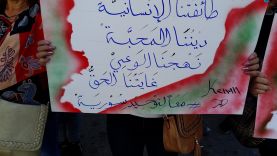 طائفتنا الإنسانية
ديننا المحبة
نهجنا الوعي
غايتنا الحق
سورية